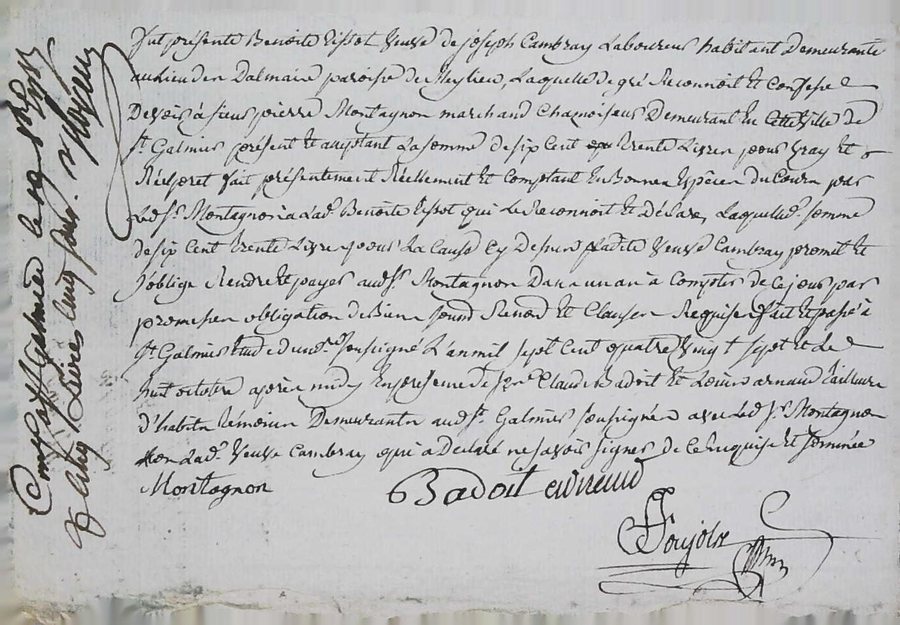 fut présente Benoite Tissot veuve de joseph Cambray Laboureur habitant Demeurante
au lieu de Dalmaire paroisse de Meylieu, Laquelle de gré Reconnoit Et Confesse
Devoir à sieur pierre Montagnon marchand Chamoiseur Demeurant En Cette ville de
St. Galmier présent et acceptant La somme de six Cent trente Livres pour vray et
présentement Réellement Et Comptant En Bonnes Espèces du Cours par
Led. sr. Montagnon à Lad. Benoite Tissot qui Le Reconnoit Et Déclare, Laquelle d. somme
de six Cent trente Livres pour La Cause Cy Dessus Ladite veuve Cambray promet Et
s'oblige Rendre Et payer aud. sr. Montagnon Dans un an à Compter de Ce jour par
promesse obligation de Biens Renon Et Clauses Requises fait Et passé à
St. Galmier Etude du nre. soussigné L'an mil sept Cent quatre vingt sept Et Le
huit octobre après midy En présence de sr. Claude Badoit Et Louis arnaud tailleur
d'habits témoins Demeurants aud. St. Galmier soussignés avec Led. sr. Montagnon
non Lad. veuve Cambray qui a Déclaré ne savoir signer de Ce Enquise Et sommée
Montagnon Badoit arnaud
Pourjols
Controllé à St Galmier le 19 8bre 1787
Reçu Livres cinq sous